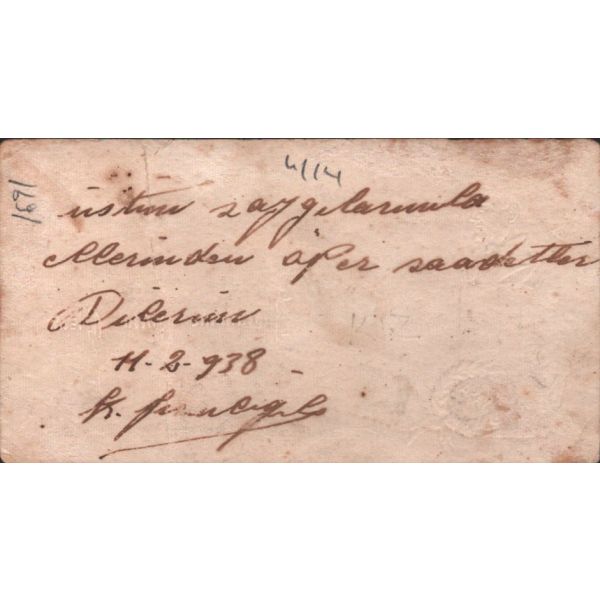 4/14
1691
üstün saygılarımla
Ellerinden öper saadetler
Dilerim
11-2-938